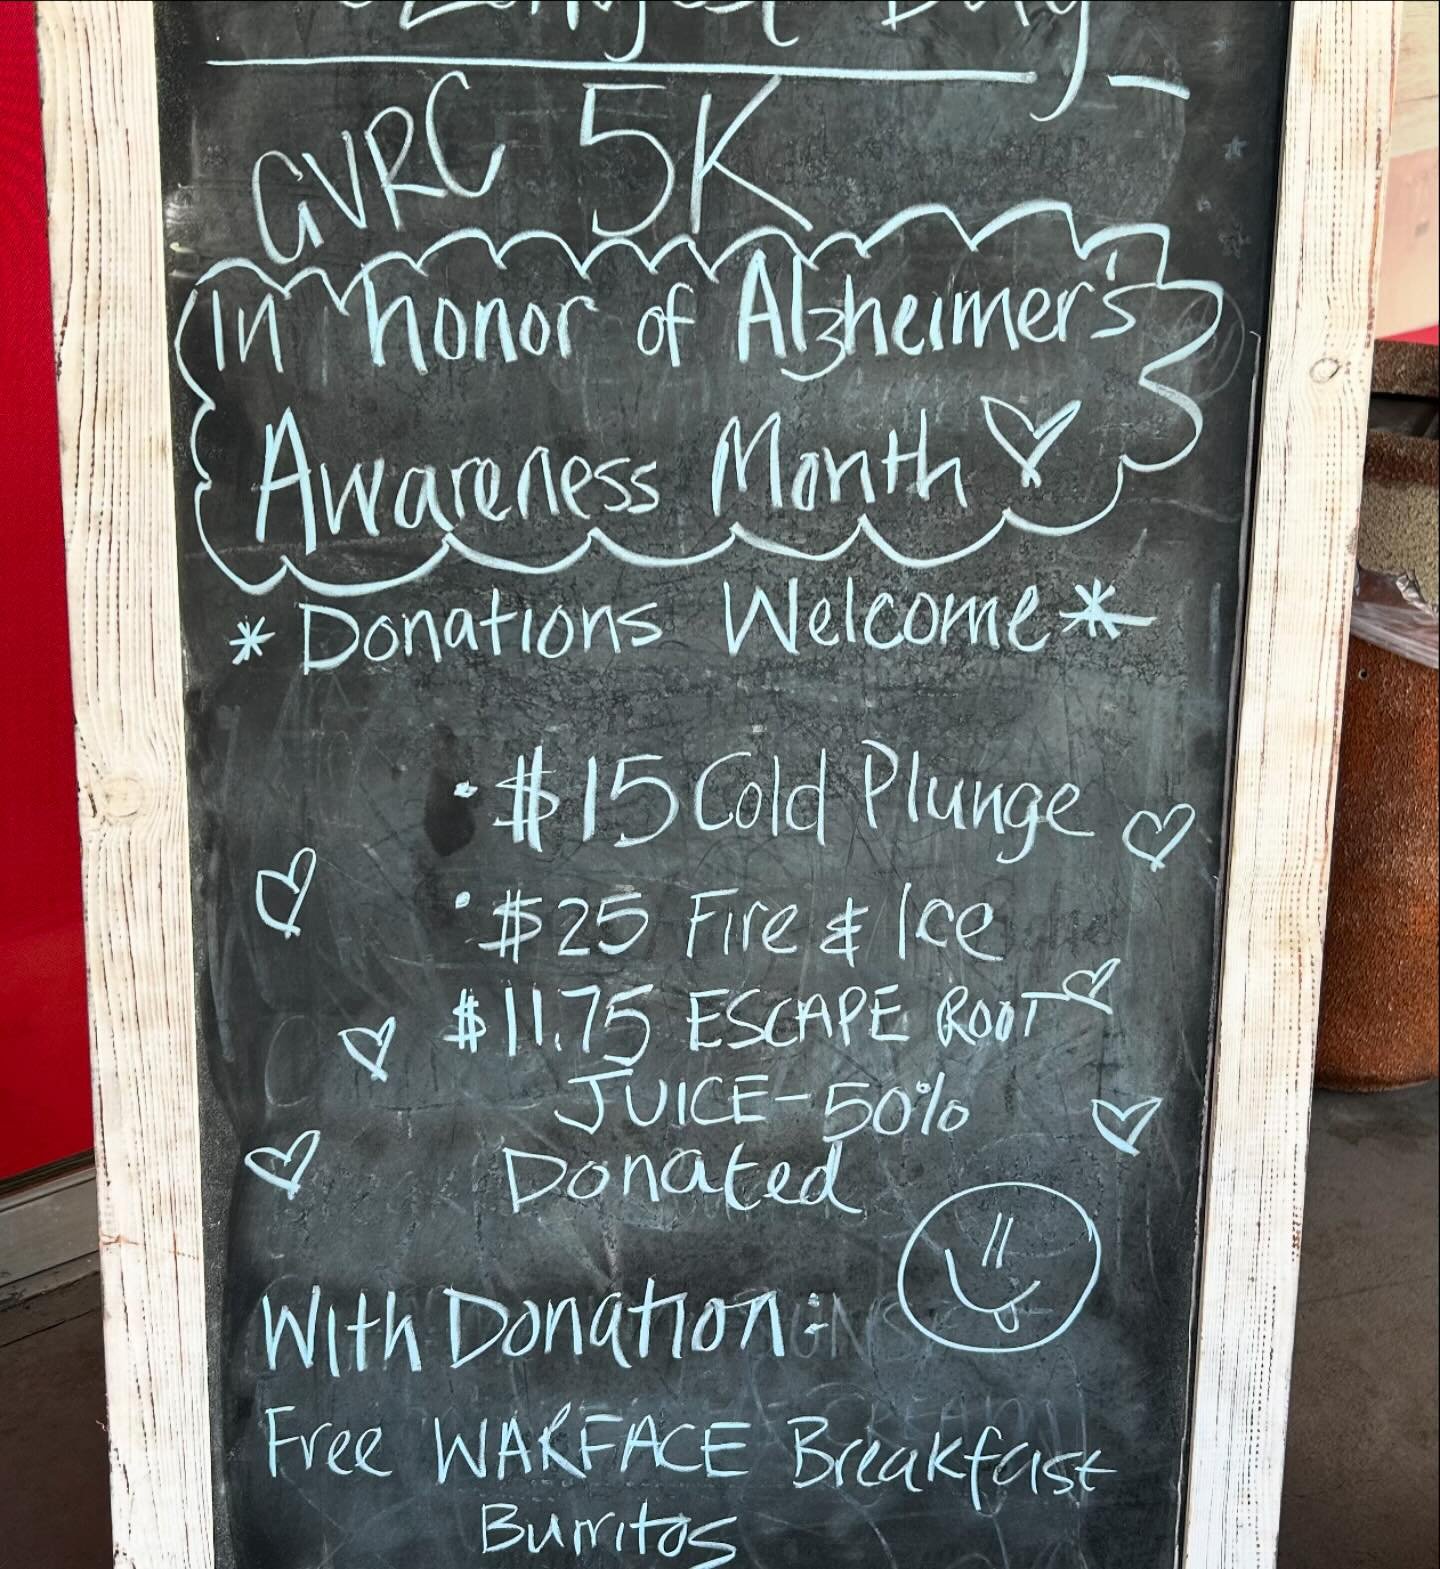 Longest Day
GVRC 5K
In honor of Alzheimer's
Awareness Month
* Donations Welcome *
· $15 Cold Plunge
· $25 Fire & Ice
$11.75 ESCAPE ROOT
JUICE - 50%
Donated
With Donation:
Free WARFACE Breakfast
Burritos